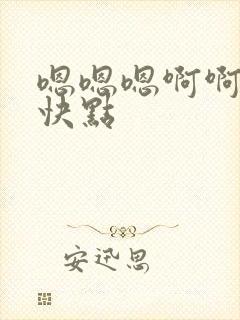 嗯嗯嗯啊啊
快點
安迅思